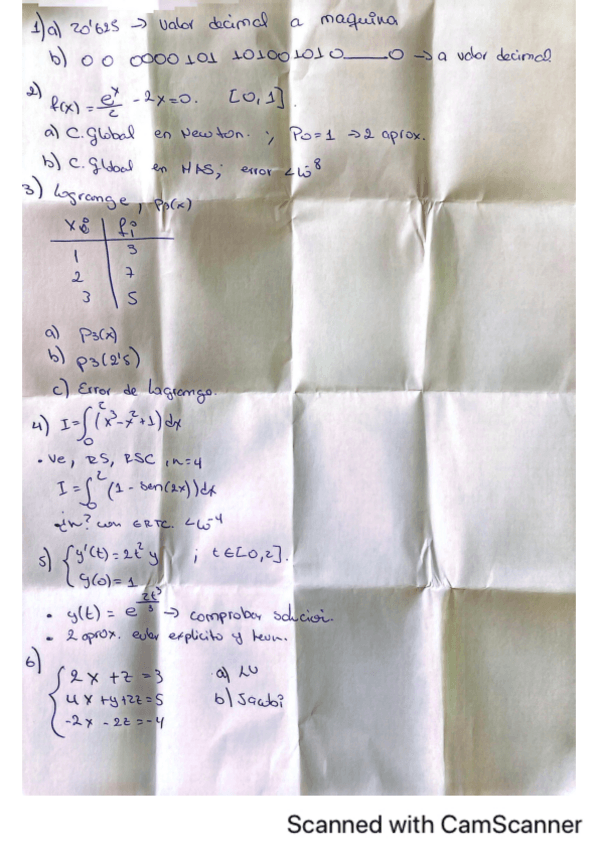 1) a) 20'625 → valor decimal a maquina
b) 0 0 0000101 101001010——0 → a valor decimal
2) f(x) = e^x/2 - 2x = 0. [0,1].
a) C. Global en Newton. ; P0=1 → 2 aprox.
b) C. Global en MAS; error < 10^-8
3) Lagrange, P3(x)
xi | fi
1 | 3
2 | 7
3 | 5
a) P3(x)
b) P3(2'5)
c) Error de Lagrange.
4) I = ∫_0^2 (x^3 - x^2 + 1) dx
• Ve, RS, RSC, n=4
I = ∫_0^2 (1 - sen(2x)) dx
¿n? con ERTC. < 10^-4
5) { y'(t) = 2t^2 y ; t ∈ [0,2].
y(0) = 1
• y(t) = e^(2t^3/3) → comprobar solucion.
• 2 aprox. euler explicito y
6)
{ 2x + z = 3 a) LU
4x + y + 2z = 5 b) Jacobi
-2x - 2z = -4
Scanned with CamScanner